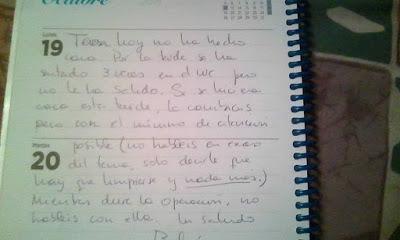 Octubre
Lunes
19 Teresa hoy no ha hecho
caca. Por la tarde se ha
sentado 3 veces en el WC pero
no le ha salido. Si se hiciera
caca esta tarde, la cambiáis
pero con el mínimo de atención
Martes
20 posible (no habléis en exceso
del tema, solo decirle que
hay que limpiarse y nada mas.)
Mientras dure la operación, no
habléis con ella. Un saludo